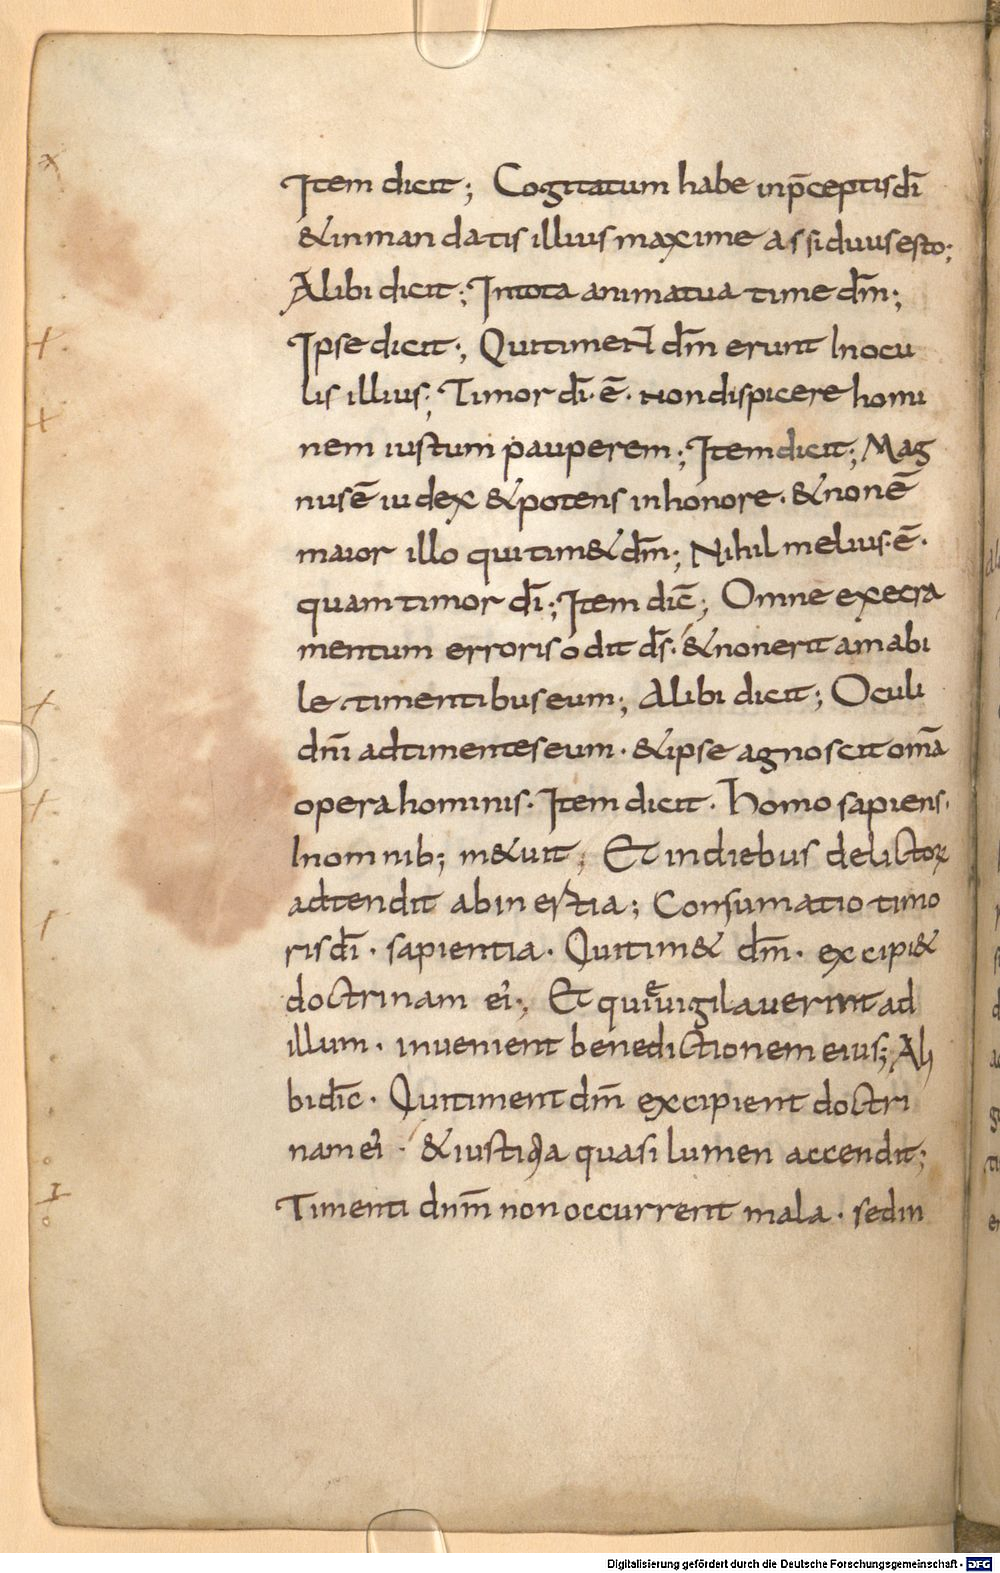 Item dicit; Cogitatum habe inp̄ceptis dī
& in mandatis illius maxime assiduus esto;
Alibi dicit; In tota anima tua time dm̄;
Ipse dicit; Qui timent dm̄ erunt In ocu
lis illius; Timor dī·ē· non dispicere homi
nem iustum pauperem; Item dicit; Mag
nus ē iudex & potens in honore· & non ē
maior illo qui tim& dm̄; Nihil melius·ē·
quam timor dī; Item dic̄; Omne execra
mentum erroris odit ds̄· & non erit amabi
le timentibus eum; Alibi dicit; Oculi
dnī ad timentes eum· & ipse agnoscit om̄a
opera hominis· Item dicit· Homo sapiens·
In omnib; m&uit; Et in diebus delictor
adtendit ab inertia; Consumatio timo
ris dī· sapientia· Qui tim& dm̄· excipi&
doctrinam ei; Et qui euigilauerint ad
illum· inuenient benedictionem eius; Ali
bi dic̄· Qui timent dm̄ excipient doctri
nam ei· & iustitia quasi lumen accendit;
Timenti dnm̄ non occurrent mala· sed in
Digitalisierung gefördert durch die Deutsche Forschungsgemeinschaft - DFG